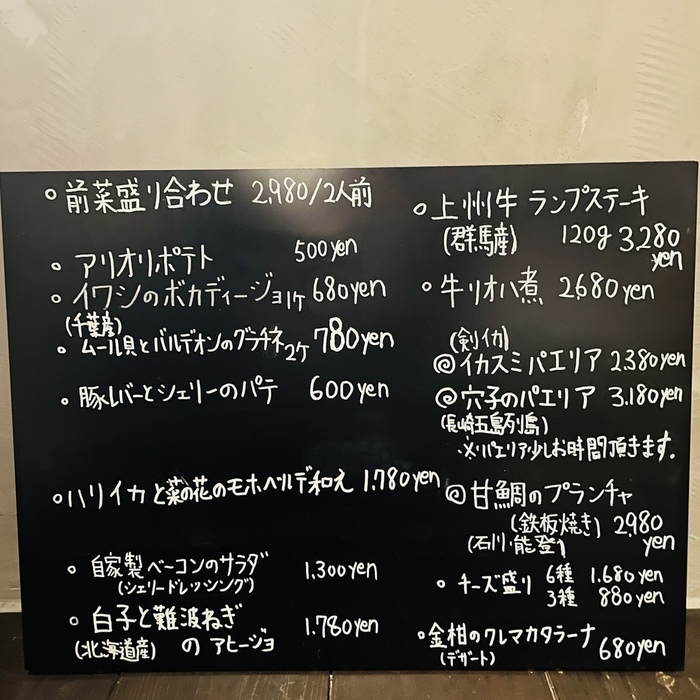 ○前菜盛り合わせ 2,980/2人前
○アリオリポテト 500yen
○イワシのボカディージョ1ケ 680yen
(千葉産)
○ムール貝とバルデオンのグラチネ2ケ 780yen
○豚レバーとシェリーのパテ 600yen
○ハリイカと菜の花のモホベルデ和え 1.780yen
○自家製ベーコンのサラダ 1.300yen
(シェリードレッシング)
○白子と難波ねぎ 1.780yen
(北海道産) の アヒージョ
○上州牛 ランプステーキ
(群馬産) 120g 3,280
yen
○牛リオハ煮 2,680yen
(剣イカ)
◎イカスミパエリア 2.380yen
◎穴子のパエリア 3.180yen
(長崎五島列島)
※パエリア少しお時間頂きます。
◎甘鯛のプランチャ
(鉄板焼き) 2,980
(石川・能登) yen
○チーズ盛り 6種 1.680yen
3種 880yen
○金柑のクレマカタラーナ 680yen
(デザート)